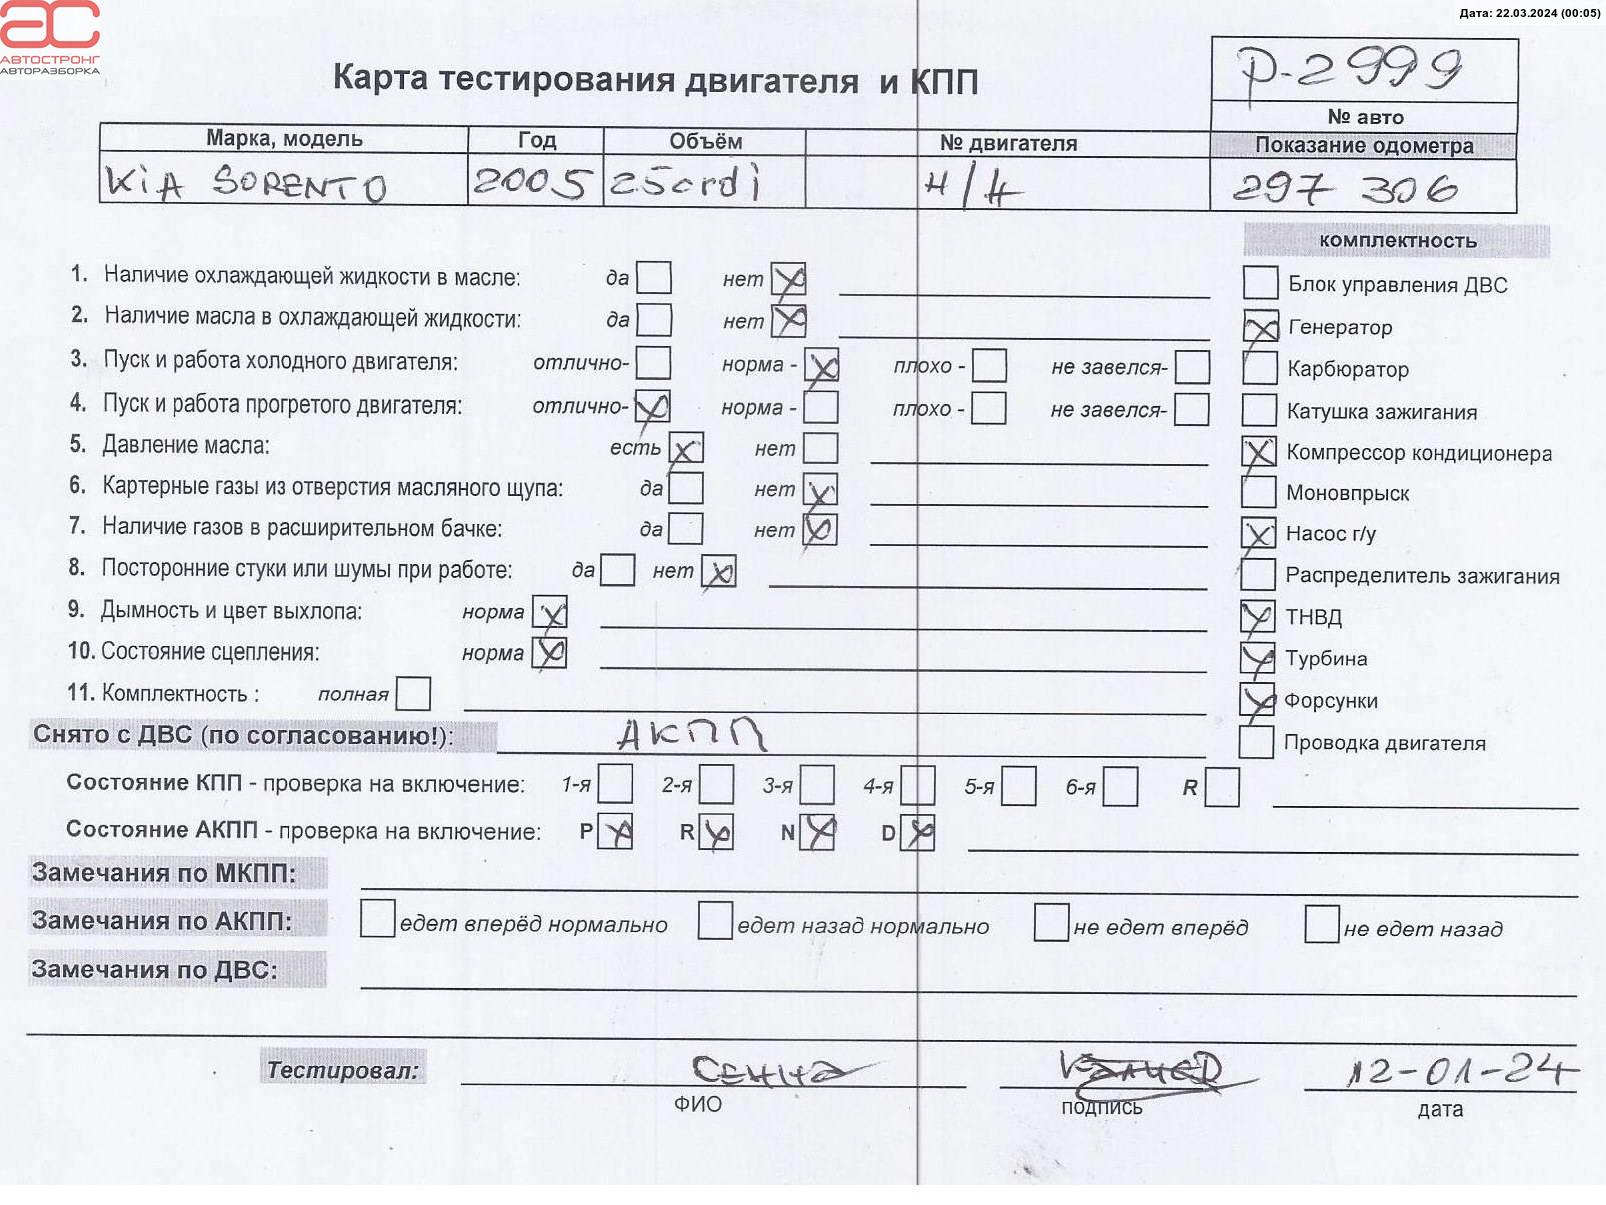 Дата: 22.03.2024 (00:05)
АС
АВТОСТРОНГ
АВТОРАЗБОРКА
Карта тестирования двигателя и КПП
Р-2999
№ авто
Марка, модель Год Объём № двигателя Показание одометра
KiA SORENTO 2005 25crdi Н/Н 297 306
комплектность
1. Наличие охлаждающей жидкости в масле: да нет
Блок управления ДВС
2. Наличие масла в охлаждающей жидкости: да нет
Генератор
3. Пуск и работа холодного двигателя: отлично- норма - плохо - не завелся-
Карбюратор
4. Пуск и работа прогретого двигателя: отлично- норма - плохо - не завелся-
Катушка зажигания
5. Давление масла: есть нет
Компрессор кондиционера
6. Картерные газы из отверстия масляного щупа: да нет
Моновпрыск
7. Наличие газов в расширительном бачке: да нет
Насос г/у
8. Посторонние стуки или шумы при работе: да нет
Распределитель зажигания
9. Дымность и цвет выхлопа: норма
ТНВД
10. Состояние сцепления: норма
Турбина
11. Комплектность : полная
Форсунки
Снято с ДВС (по согласованию!): АКПП
Проводка двигателя
Состояние КПП - проверка на включение: 1-я 2-я 3-я 4-я 5-я 6-я R
Состояние АКПП - проверка на включение: P R N D
Замечания по МКПП:
Замечания по АКПП: едет вперёд нормально едет назад нормально не едет вперёд не едет назад
Замечания по ДВС:
Тестировал: 12-01-24
ФИО подпись дата